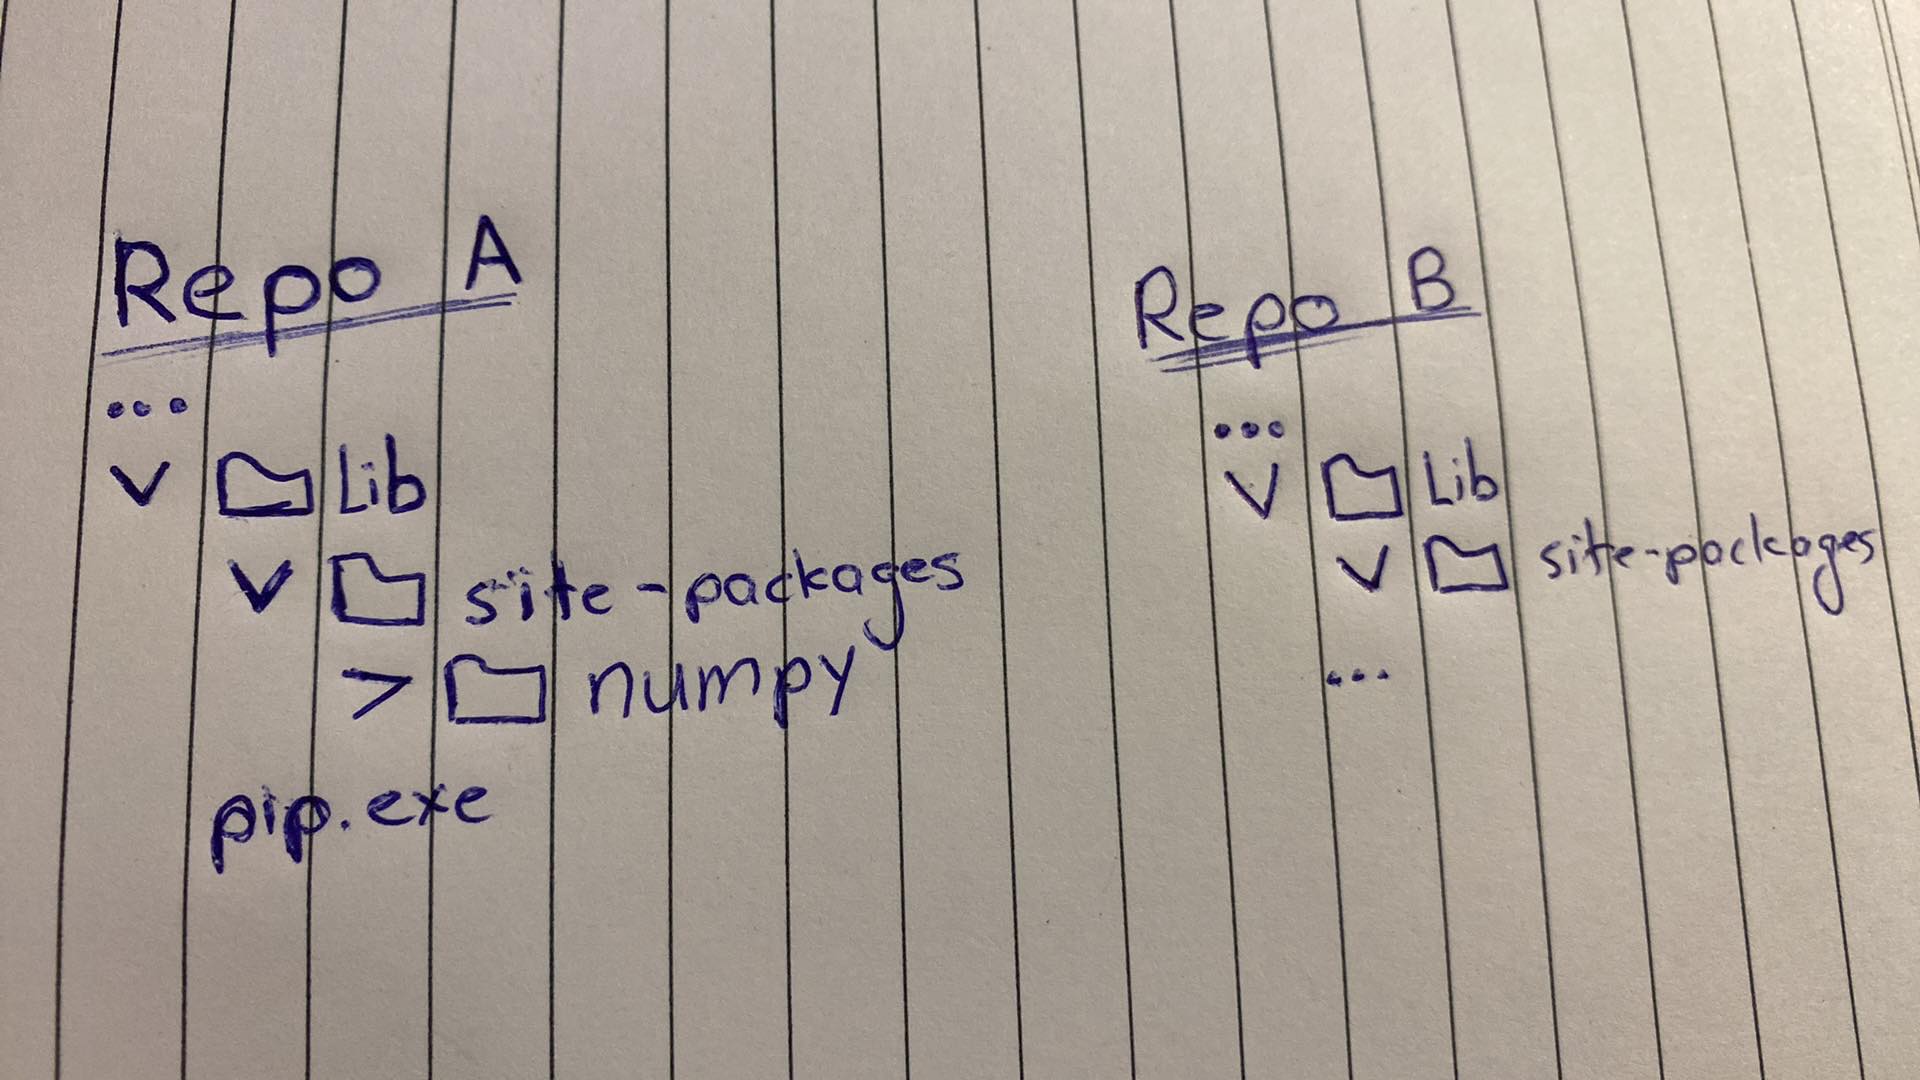 Repo A
...
v Lib
v site-packages
> numpy
pip.exe
Repo B
...
v Lib
v site-packages
...